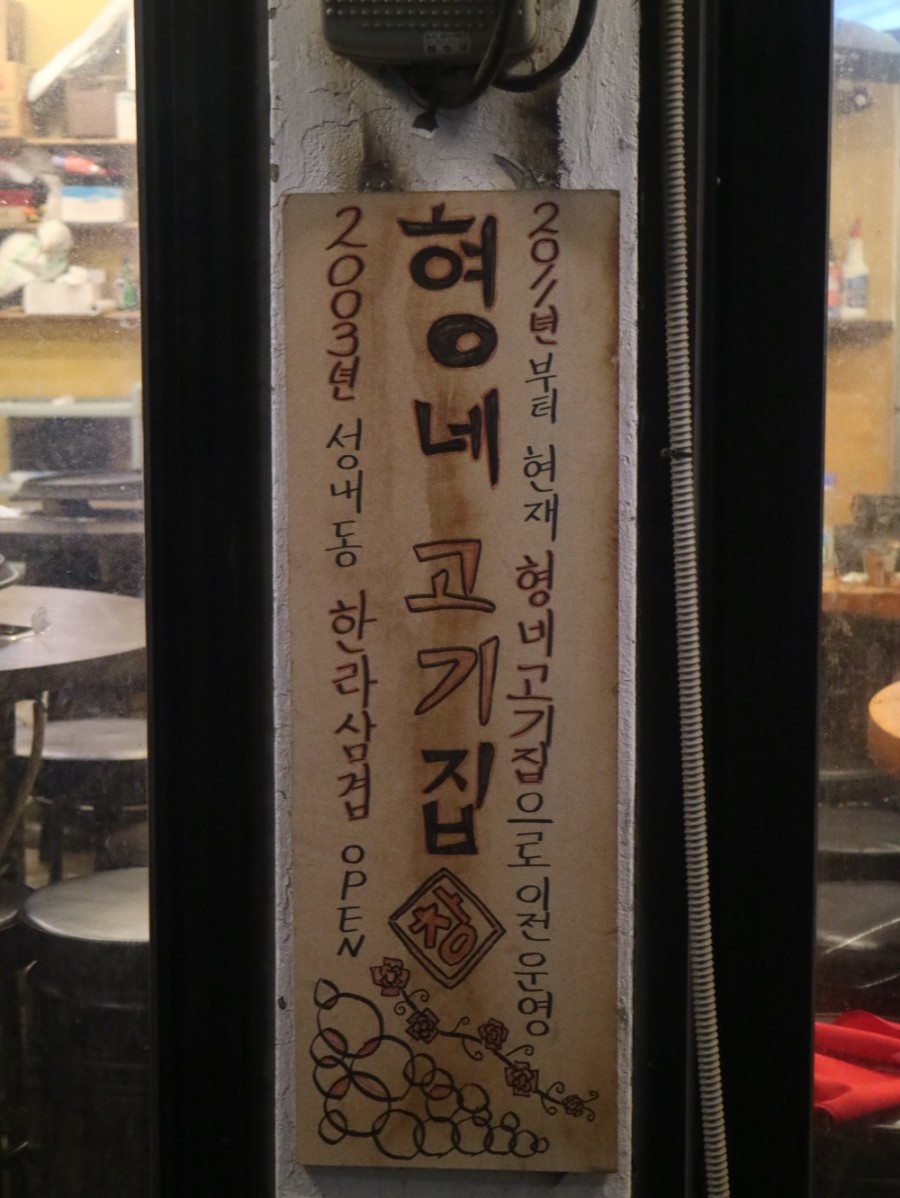 2003년 성내동 한라삼겹 OPEN
형네 고기집 창
2011년부터 현재 형네고기집으로 이전운영